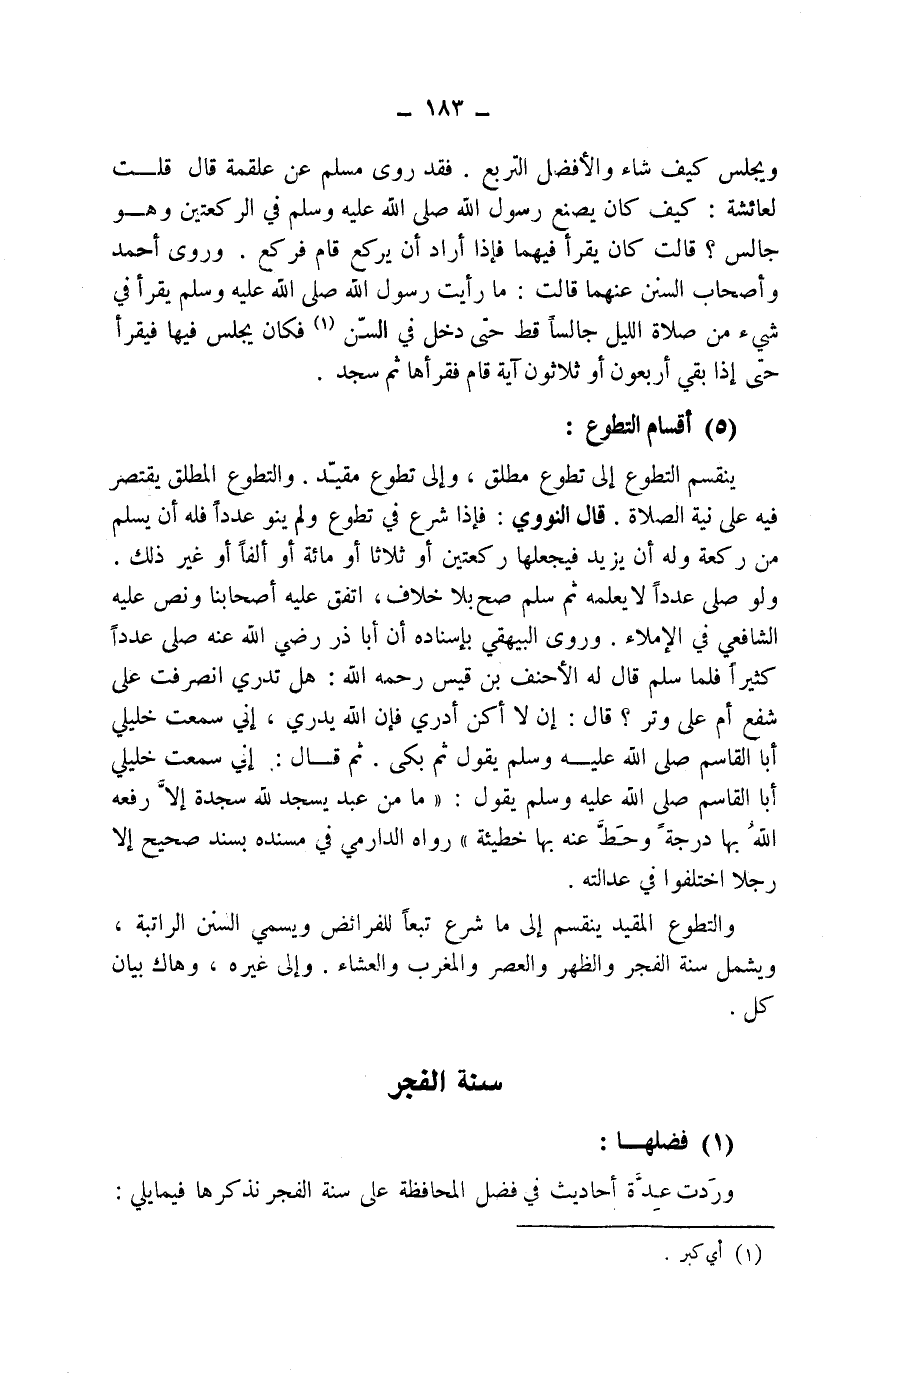 ـ ١٨٣ ـ
ويجلس كيف شاء والأفضل التربع . فقد روى مسلم عن علقمة قال قلـــت
لعائشة : كيف كان يصنع رسول الله صلى الله عليه وسلم في الركعتين وهــو
جالس ؟ قالت كان يقرأ فيهما فإذا أراد أن يركع قام فركع . وروى أحمد
وأصحاب السنن عنهما قالت : ما رأيت رسول الله صلى الله عليه وسلم يقرأ في
شيء من صلاة الليل جالساً قط حتى دخل في السنّ (١) فكان يجلس فيها فيقرأ
حتّى إذا بقي أربعون أو ثلاثون آية قام فقرأها ثم سجد .
(٥) أقسام التطوع :
ينقسم التطوع إلى تطوع مطلق ، وإلى تطوع مقيّد . والتطوع المطلق يقتصر
فيه على نية الصلاة . قال النووي : فإذا شرع في تطوع ولم ينو عدداً فله أن يسلم
من ركعة وله أن يزيد فيجعلها ركعتين أو ثلاثا أو مائة أو ألفاً أو غير ذلك .
ولو صلى عدداً لا يعلمه ثم سلم صح بلا خلاف ، اتفق عليه أصحابنا ونص عليه
الشافعي في الإملاء . وروى البيهقي بإسناده أن أبا ذر رضي الله عنه صلى عدداً
كثيراً فلما سلم قال له الأحنف بن قيس رحمه الله : هل تدري انصرفت على
شفع أم على وتر ؟ قال : إن لا أكن أدري فإن الله يدري ، إني سمعت خليلي
أبا القاسم صلى الله عليـــه وسلم يقول ثم بكى . ثم قـــال : إني سمعت خليلي
أبا القاسم صلى الله عليه وسلم يقول : « ما من عبد يسجد لله سجدة إلاَّ رفعه
اللهُ بها درجةً وحَطَّ عنه بها خطيئة » رواه الدارمي في مسنده بسند صحيح إلا
رجلا اختلفوا في عدالته .
والتطوع المقيد ينقسم إلى ما شرع تبعاً للفرائض ويسمي السنن الراتبة ،
ويشمل سنة الفجر والظهر والعصر والمغرب والعشاء . وإلى غيره ، وهاك بيان
كل .
سنة الفجر
(١) فضلهـــا :
ورَدت عِدَّة أحاديث في فضل المحافظة على سنة الفجر نذكرها فيما يلي :
(١) أي كبر .